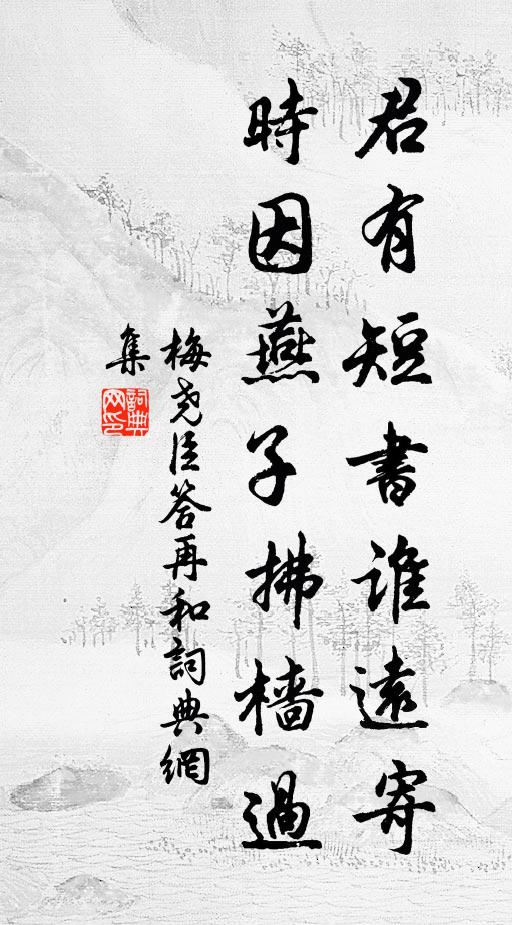 君有短書誰遠寄
時因燕子拂檣過
梅尧臣答再和詞典網
集
詞典
网印